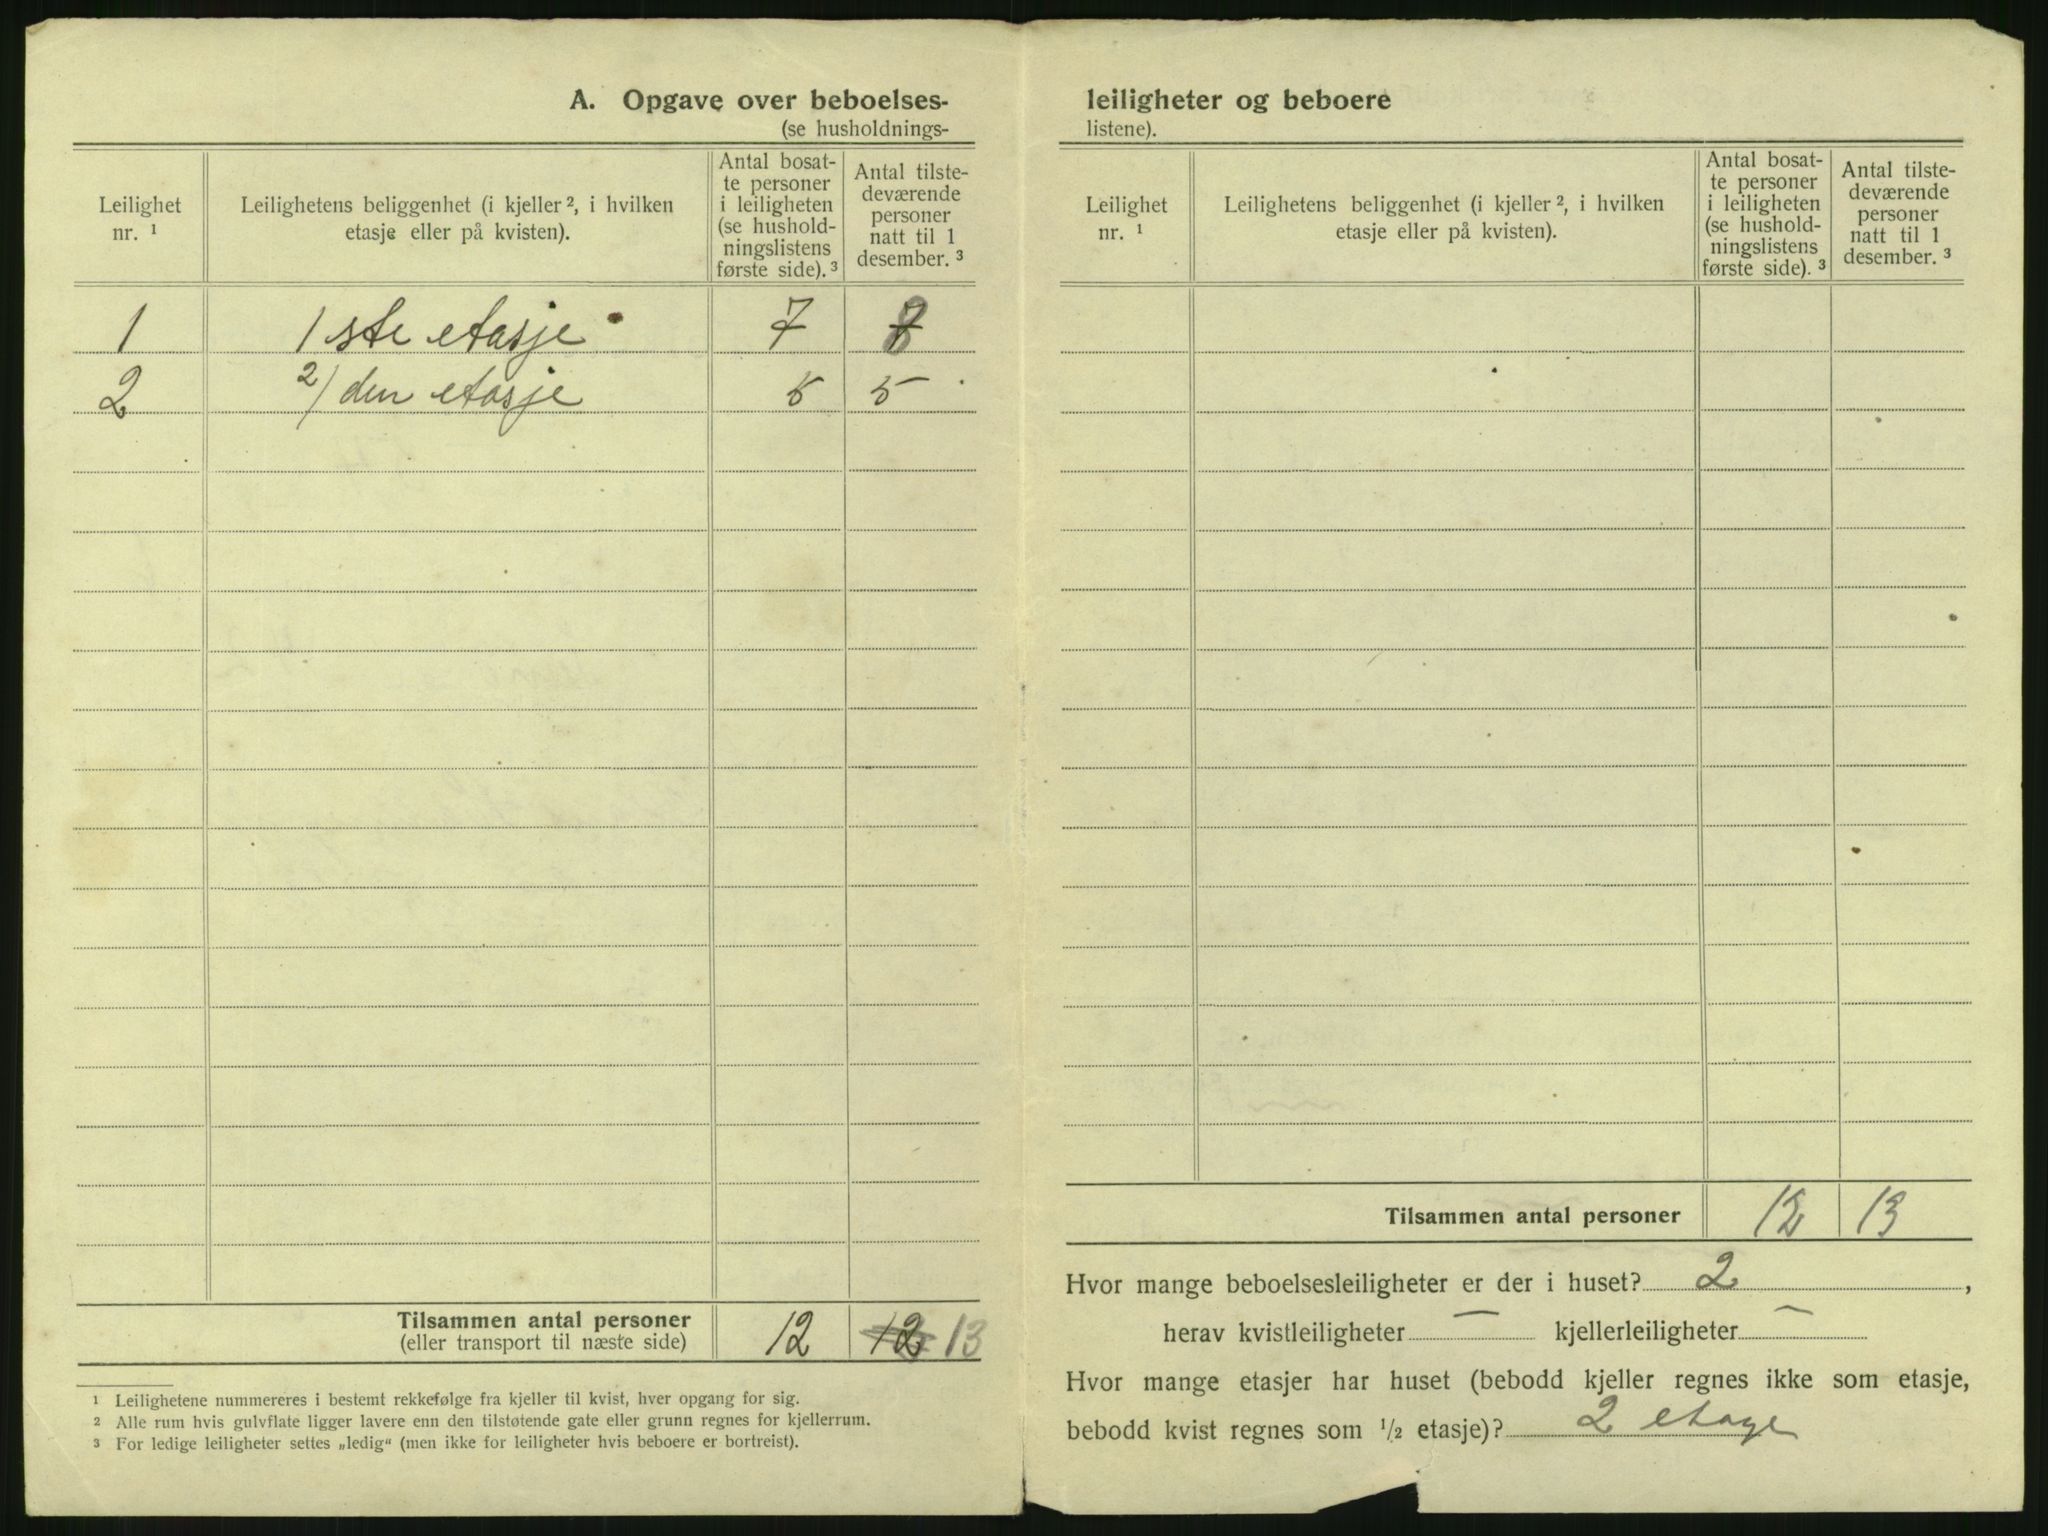 A. Opgave over beboelses- leiligheter og beboere
(se husholdnings- listene).
Leilighet nr. ¹
Leilighetens beliggenhet (i kjeller ², i hvilken
etasje eller på kvisten).
Antal bosat-
te personer
i leiligheten
(se hushold-
ningslistens
første side). ³
Antal tilste-
deværende
personer
natt til 1
desember. ³
1 1 ste etasje 7 8
2 2) den etasje 5 5
Tilsammen antal personer 12 12 13
(eller transport til næste side)
¹ Leilighetene nummereres i bestemt rekkefølge fra kjeller til kvist, hver opgang for sig.
² Alle rum hvis gulvflate ligger lavere enn den tilstøtende gate eller grunn regnes for kjellerrum.
³ For ledige leiligheter settes „ledig“ (men ikke for leiligheter hvis beboere er bortreist).
Leilighet nr. ¹
Leilighetens beliggenhet (i kjeller ², i hvilken
etasje eller på kvisten).
Antal bosat-
te personer
i leiligheten
(se hushold-
ningslistens
første side). ³
Antal tilste-
deværende
personer
natt til 1
desember. ³
Tilsammen antal personer 12 13
Hvor mange beboelsesleiligheter er der i huset? 2,
herav kvistleiligheter — kjellerleiligheter —
Hvor mange etasjer har huset (bebodd kjeller regnes ikke som etasje,
bebodd kvist regnes som ½ etasje)? 2 etage